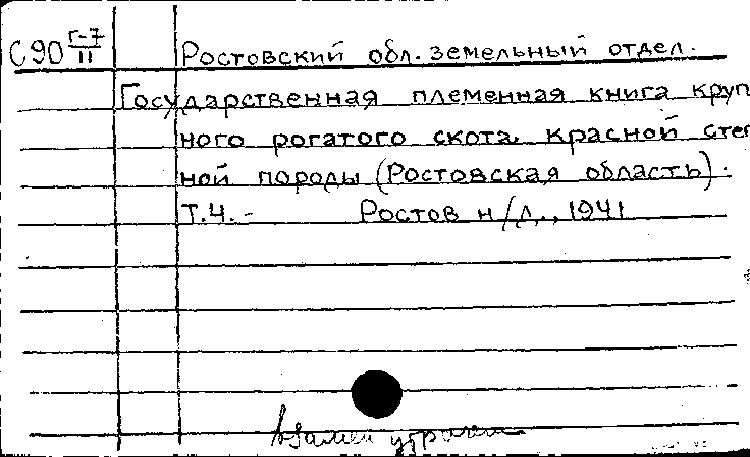 С90 Г-7/II Ростовский обл. земельный отдел.
Государственная племенная книга круп
ного рогатого скота красной степ
ной породы (Ростовская область).
Т.4. - Ростов н/Д., 1941
Взамен утрачен